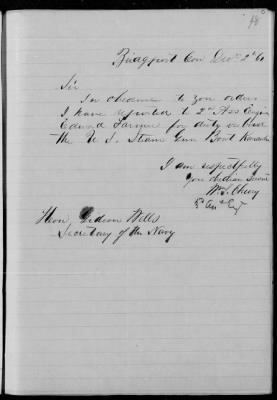 Bridgport Con Decr 2d 61
Sir
In obediance to your orders
I have reported to 2nd Ass Engin
Edward Farmer for duty on board
the U S. Steam Gun Boat Kanawha
I am respectfully
your obedian Servant
Wm
Hon. Gideon Wells
Secretary of the Navy